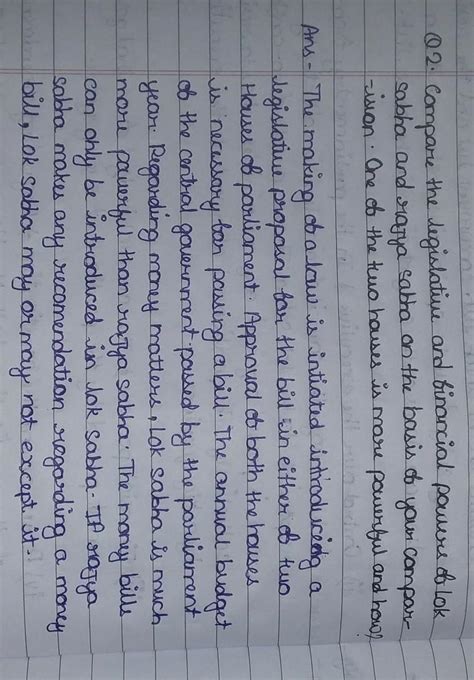 Q2. Compare the legislative and financial powers of Lok
sabha and rajya sabha on the basis of your compar-
-ision. One of the two houses is more powerful and how?
Ans- The making of a law is intiated intrioduceing a
legislative proposal for the bill in either of two
Houses of parliament. Approval of both the houses
is necessary for passing a bill. The annual budget
of the central government passed by the parliament
year. Regarding money matters, Lok sabha is much
more powerful than rajya sabha. The money bills
can only be introduced in lok sabha. If rajya
sabha makes any recomendation regarding a money
bill, Lok sabha may or may not except it.